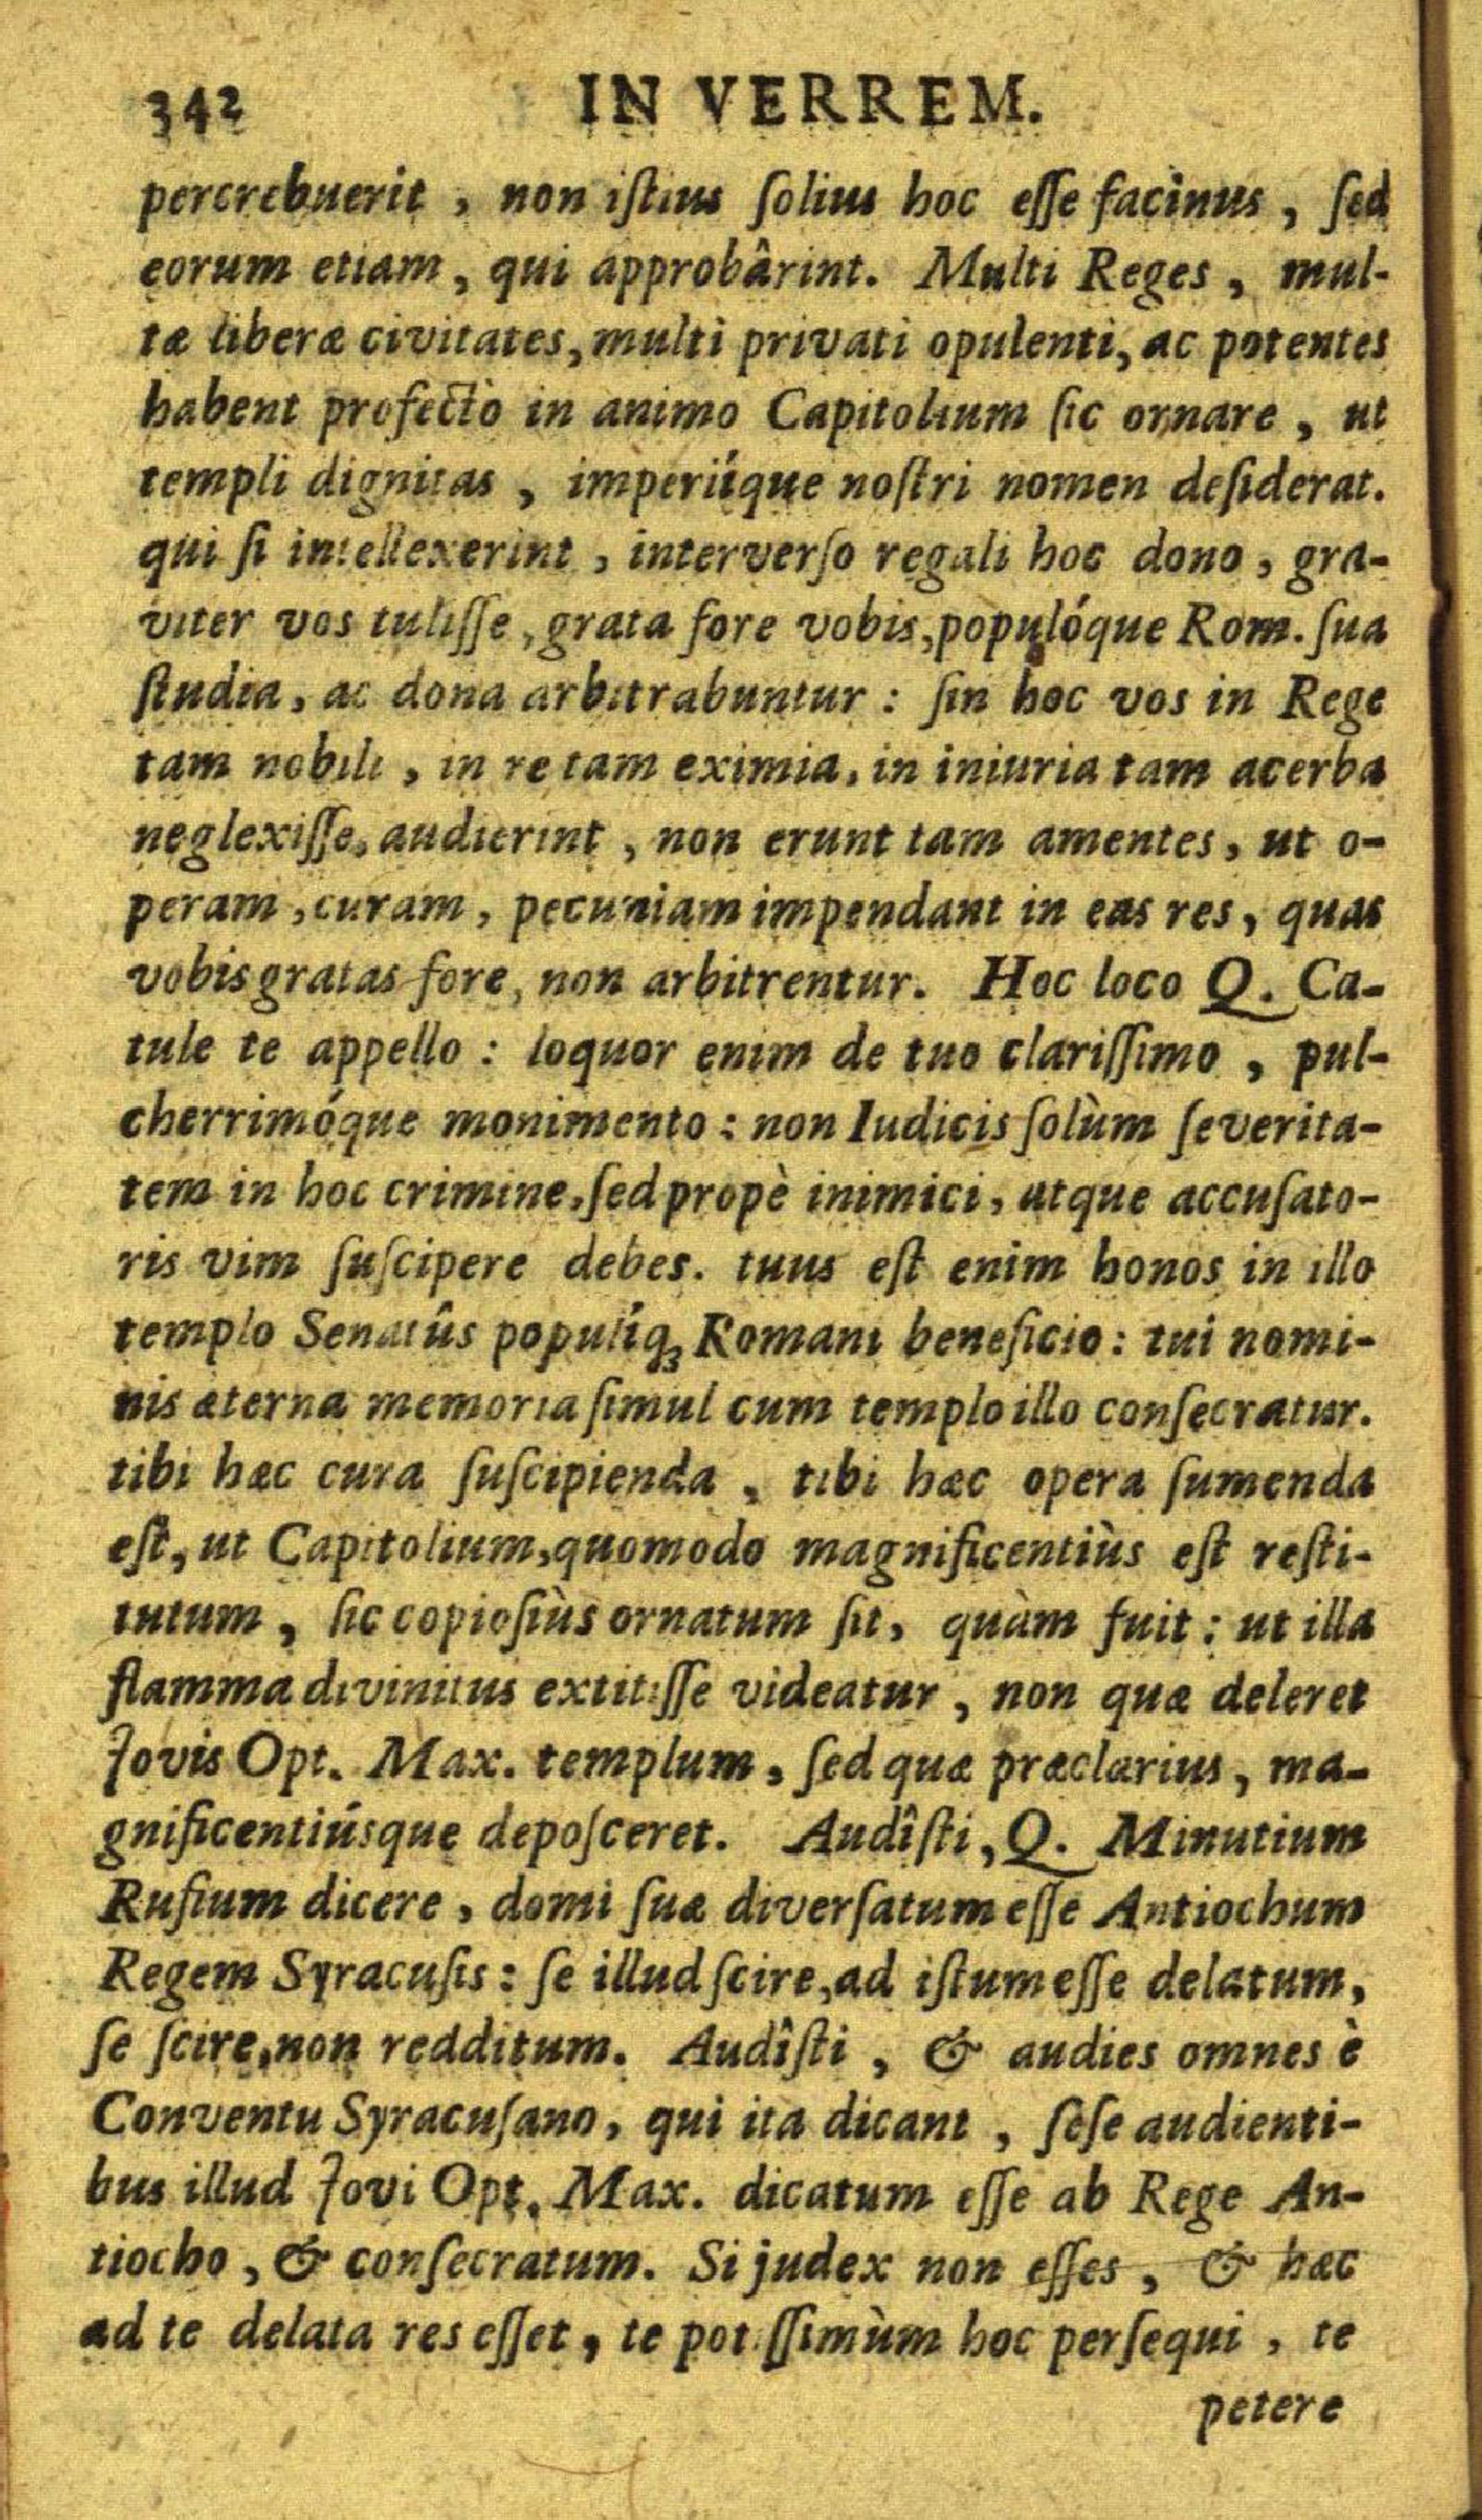 342 IN VERREM.
percrebuerit, non iſtius ſolius hoc eſſe facinus, ſed
eorum etiam, qui approbârint. Multi Reges, mul-
tæ liberæ civitates, multi privati opulenti, ac potentes
habent profectò in animo Capitolium ſic ornare, ut
templi dignitas, imperiíque noſtri nomen deſiderat.
qui ſi intellexerint, interverſo regali hoc dono, gra-
viter vos tuliſſe, grata fore vobis, populóque Rom. ſua
ſtudia, ac dona arbitrabuntur: ſin hoc vos in Rege
tam nobili, in re tam eximia, in iniuria tam acerba
neglexiſſe, audierint, non erunt tam amentes, ut o-
peram, curam, pecuniam impendant in eas res, quas
vobis gratas fore, non arbitrentur. Hoc loco Q. Ca-
tule te appello: loquor enim de tuo clariſſimo, pul-
cherrimóque monimento: non Iudicis ſolùm ſeverita-
tem in hoc crimine, ſed propè inimici, atque accuſato-
ris vim ſuſcipere debes. tuus eſt enim honos in illo
templo Senatûs populíq; Romani beneficio: tui nomi-
nis æterna memoria ſimul cum templo illo conſecratur.
tibi hæc cura ſuſcipienda, tibi hæc opera ſumenda
eſt, ut Capitolium, quomodo magnificentiùs eſt reſti-
tutum, ſic copioſiùs ornatum ſit, quàm fuit: ut illa
flamma divinitus extitiſſe videatur, non quæ deleret
Jovis Opt. Max. templum, ſed quæ præclarius, ma-
gnificentiúsque depoſceret. Audîſti, Q. Minutium
Rufium dicere, domi ſuæ diverſatum eſſe Antiochum
Regem Syracuſis: ſe illud ſcire, ad iſtum eſſe delatum,
ſe ſcire, non redditum. Audîſti, & audies omnes è
Conventu Syracuſano, qui ita dicant, ſeſe audienti-
bus illud Jovi Opt. Max. dicatum eſſe ab Rege An-
tiocho, & conſecratum. Si judex non eſſes, & hæc
ad te delata res eſſet, te potiſſimùm hoc perſequi, te
petere